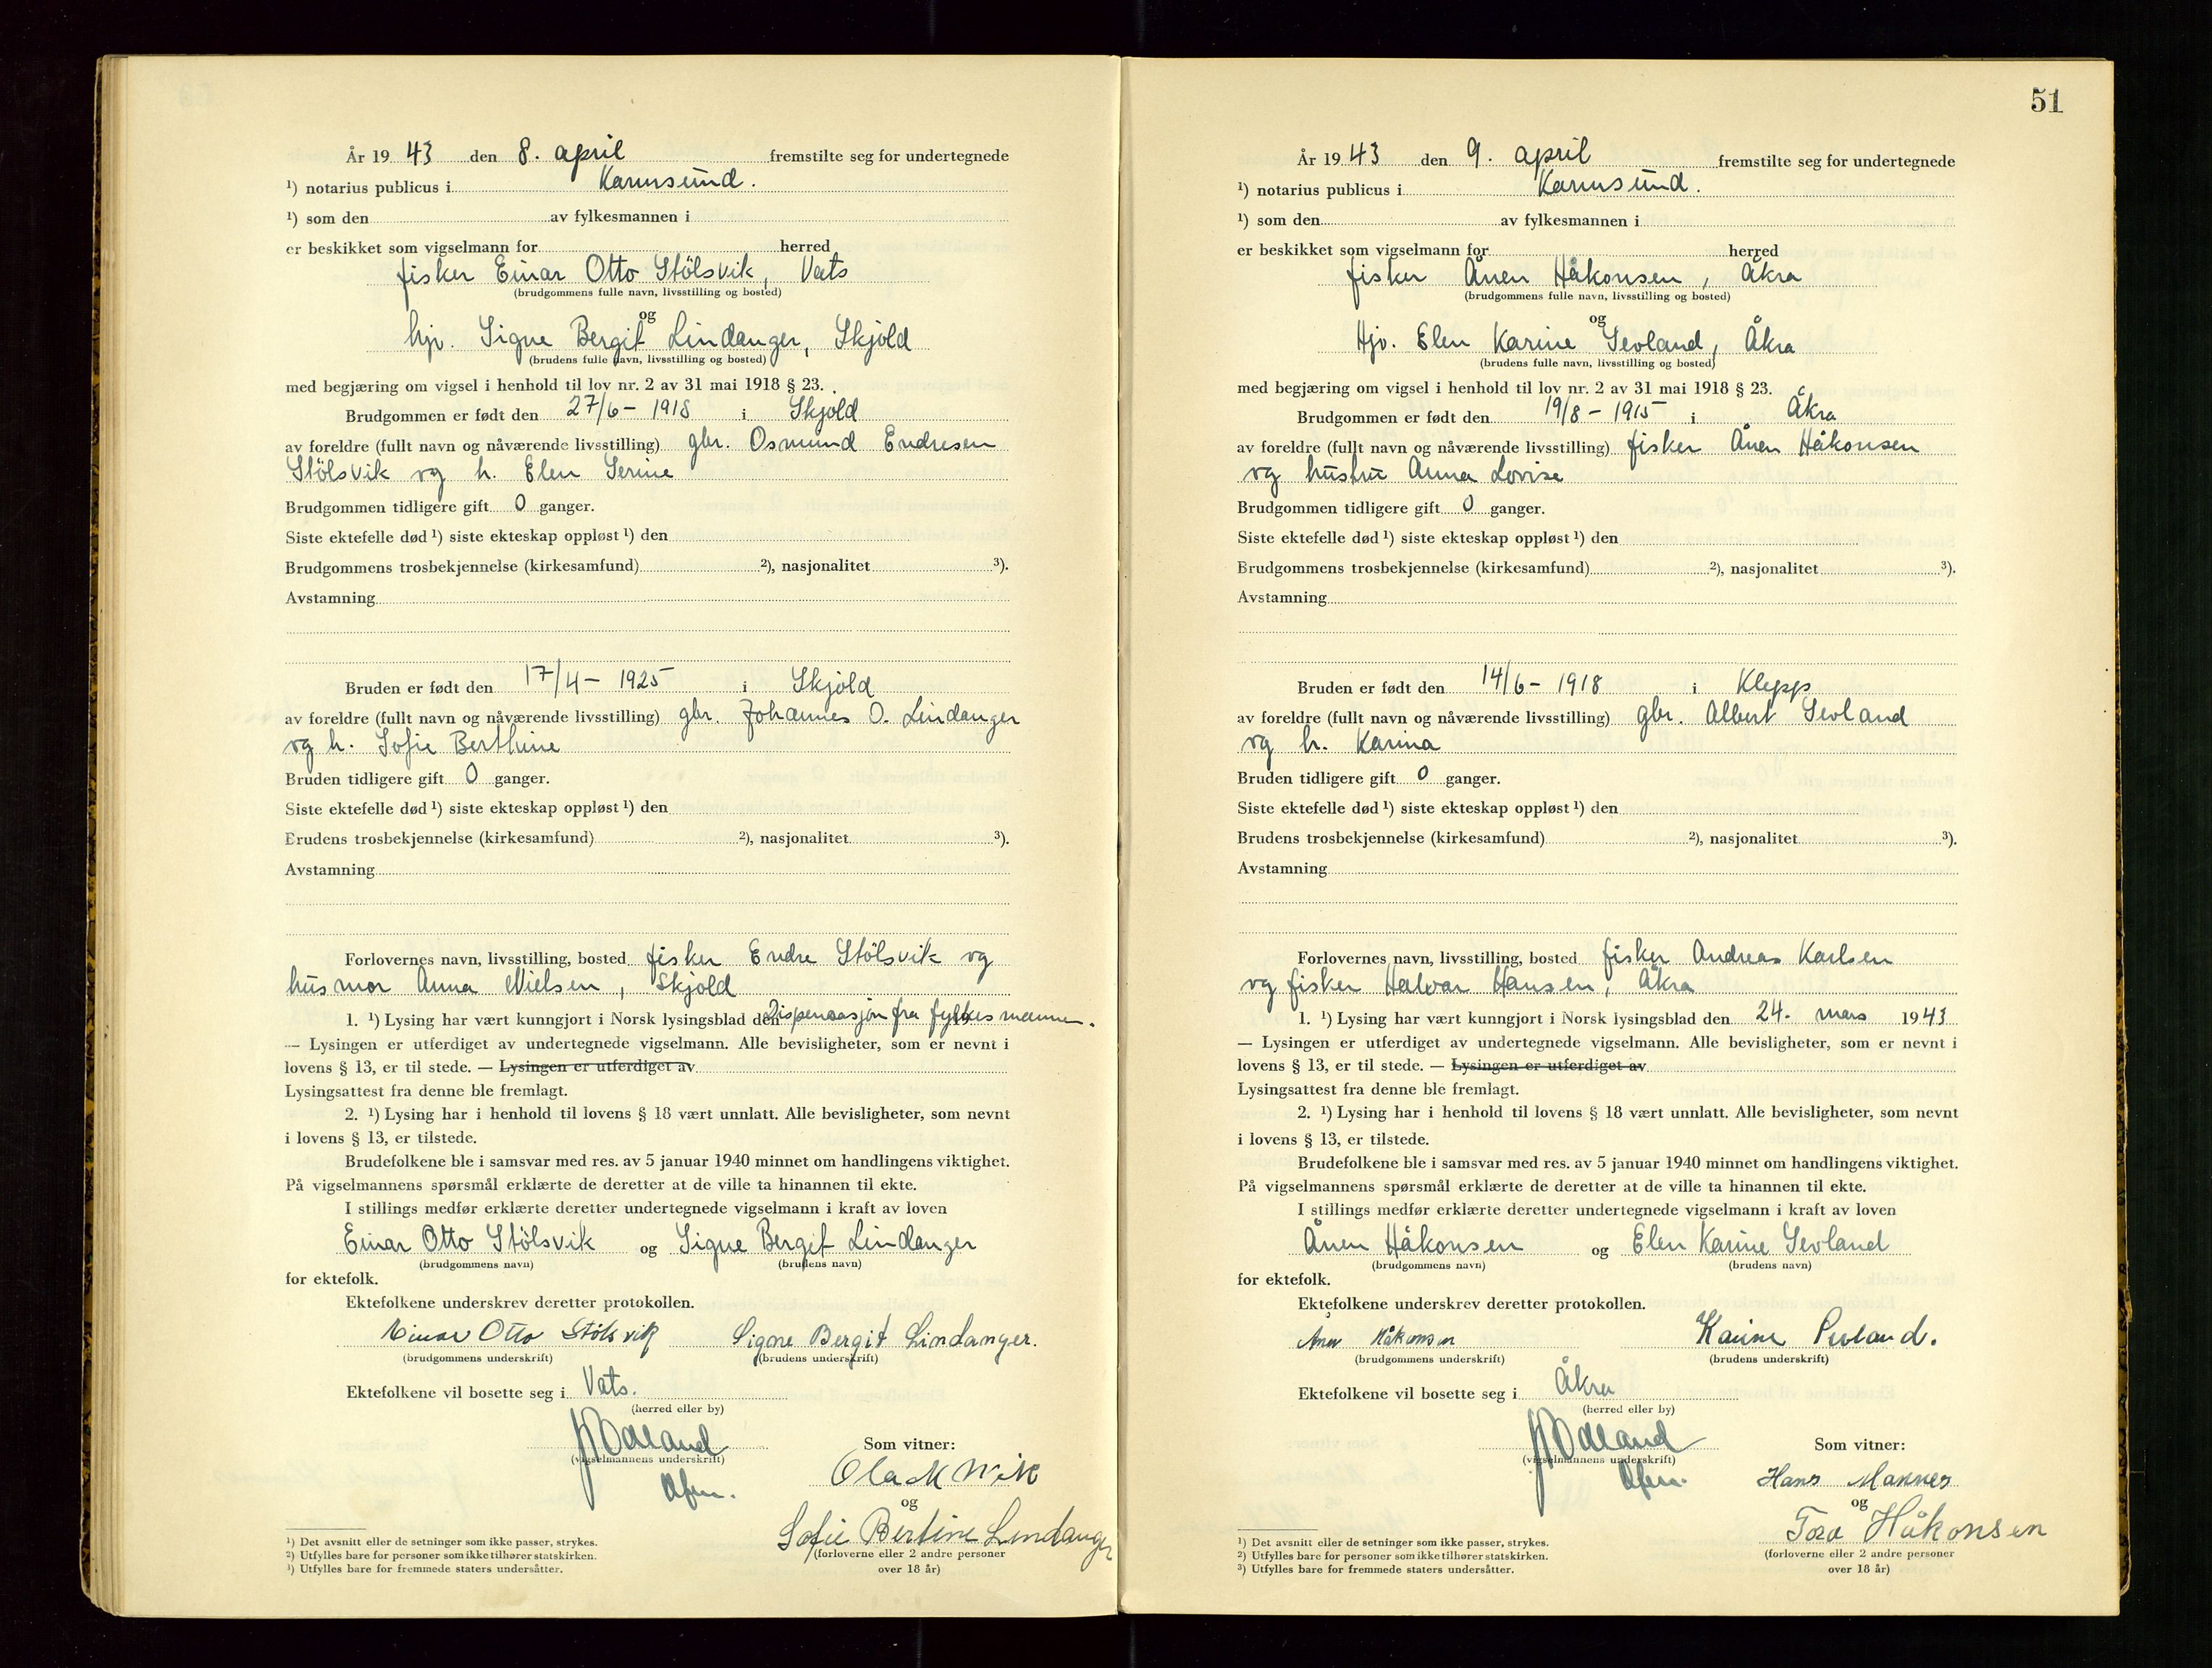 År 19 43 den 8. april fremstilte seg for undertegnede
¹) notarius publicus i Karmsund.
¹) som den av fylkesmannen i
er beskikket som vigselmann for herred
fisker Einar Otto Stölsvik, Vats
(brudgommens fulle navn, livsstilling og bosted)
og
hjv. Signe Bergit Lindanger, Skjold
(brudens fulle navn, livsstilling og bosted)
med begjæring om vigsel i henhold til lov nr. 2 av 31 mai 1918 § 23.
Brudgommen er født den 27/6 - 1918 i Skjold
av foreldre (fullt navn og nåværende livsstilling) gbr. Osmund Endresen
Stölsvik og h. Elen Serine
Brudgommen tidligere gift 0 ganger.
Siste ektefelle død ¹) siste ekteskap oppløst ¹) den
Brudgommens trosbekjennelse (kirkesamfund) ²), nasjonalitet ³).
Avstamning
Bruden er født den 17/4 - 1925 i Skjold
av foreldre (fullt navn og nåværende livsstilling) gbr. Johannes O. Lindanger
og h. Sofie Berthine
Bruden tidligere gift 0 ganger.
Siste ektefelle død ¹) siste ekteskap oppløst ¹) den
Brudens trosbekjennelse (kirkesamfund) ²), nasjonalitet ³).
Avstamning
Forlovernes navn, livsstilling, bosted fisker Endre Stölsvik og
husmor Anna Nielsen, Skjold
1. ¹) Lysing har vært kunngjort i Norsk lysingsblad den Dispensasjon fra fylkesmannen.
— Lysingen er utferdiget av undertegnede vigselmann. Alle bevisligheter, som er nevnt i
lovens § 13, er til stede. — Lysingen er utferdiget av
Lysingsattest fra denne ble fremlagt.
2. ¹) Lysing har i henhold til lovens § 18 vært unnlatt. Alle bevisligheter, som nevnt
i lovens § 13, er tilstede.
Brudefolkene ble i samsvar med res. av 5 januar 1940 minnet om handlingens viktighet.
På vigselmannens spørsmål erklærte de deretter at de ville ta hinannen til ekte.
I stillings medfør erklærte deretter undertegnede vigselmann i kraft av loven
Einar Otto Stölsvik og Signe Bergit Lindanger
(brudgommens navn) (brudens navn)
for ektefolk.
Ektefolkene underskrev deretter protokollen.
Einar Otto Stölsvik Signe Bergit Lindanger.
(brudgommens underskrift) (brudens underskrift)
Ektefolkene vil bosette seg i Vats.
(herred eller by)
Ødland Som vitner:
(vigselmannens underskrift)
Ola K Wik
og
Sofie Bertine Lindanger
(forloverne eller 2 andre personer
over 18 år)
¹) Det avsnitt eller de setninger som ikke passer, strykes.
²) Utfylles bare for personer som ikke tilhører statskirken.
³) Utfylles bare for fremmede staters undersåtter.
51
År 19 43 den 9. april fremstilte seg for undertegnede
¹) notarius publicus i Karmsund.
¹) som den av fylkesmannen i
er beskikket som vigselmann for herred
fisker Ånen Håkonsen, Åkra
(brudgommens fulle navn, livsstilling og bosted)
og
Hjv. Elen Karine Sevland, Åkra
(brudens fulle navn, livsstilling og bosted)
med begjæring om vigsel i henhold til lov nr. 2 av 31 mai 1918 § 23.
Brudgommen er født den 19/8 - 1915 i Åkra
av foreldre (fullt navn og nåværende livsstilling) fisker Ånen Håkonsen
og hustru Anna Lovise
Brudgommen tidligere gift 0 ganger.
Siste ektefelle død ¹) siste ekteskap oppløst ¹) den
Brudgommens trosbekjennelse (kirkesamfund) ²), nasjonalitet ³).
Avstamning
Bruden er født den 14/6 - 1918 i Klepp
av foreldre (fullt navn og nåværende livsstilling) gbr. Albert Sevland
og h. Karina
Bruden tidligere gift 0 ganger.
Siste ektefelle død ¹) siste ekteskap oppløst ¹) den
Brudens trosbekjennelse (kirkesamfund) ²), nasjonalitet ³).
Avstamning
Forlovernes navn, livsstilling, bosted fisker Andreas Karlsen
og fisker Halvar Hansen, Åkra
1. ¹) Lysing har vært kunngjort i Norsk lysingsblad den 24. mars 1943
— Lysingen er utferdiget av undertegnede vigselmann. Alle bevisligheter, som er nevnt i
lovens § 13, er til stede. — Lysingen er utferdiget av
Lysingsattest fra denne ble fremlagt.
2. ¹) Lysing har i henhold til lovens § 18 vært unnlatt. Alle bevisligheter, som nevnt
i lovens § 13, er tilstede.
Brudefolkene ble i samsvar med res. av 5 januar 1940 minnet om handlingens viktighet.
På vigselmannens spørsmål erklærte de deretter at de ville ta hinannen til ekte.
I stillings medfør erklærte deretter undertegnede vigselmann i kraft av loven
Ånen Håkonsen og Elen Karine Sevland
(brudgommens navn) (brudens navn)
for ektefolk.
Ektefolkene underskrev deretter protokollen.
Ånen Håkonsen Karine Sevland.
(brudgommens underskrift) (brudens underskrift)
Ektefolkene vil bosette seg i Åkra
(herred eller by)
Ødland Som vitner:
(vigselmannens underskrift)
Hans Mannes
og
Tora Håkonsen
(forloverne eller 2 andre personer
over 18 år)
¹) Det avsnitt eller de setninger som ikke passer, strykes.
²) Utfylles bare for personer som ikke tilhører statskirken.
³) Utfylles bare for fremmede staters undersåtter.